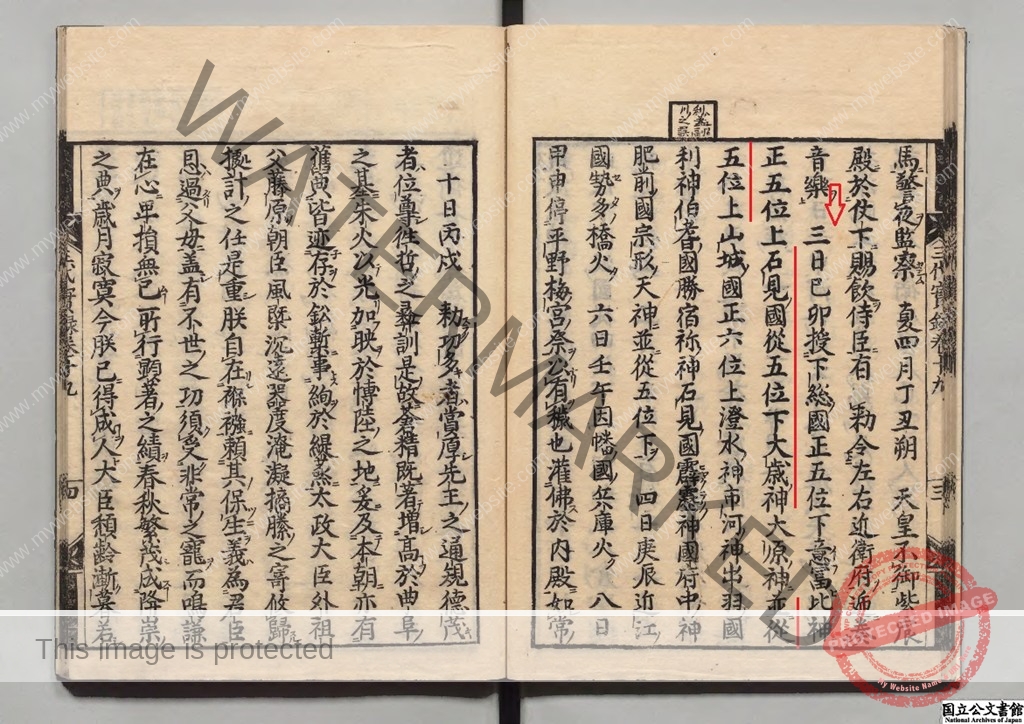 馬警夜監察　夏四月丁丑朔　天皇不御紫宸
殿於仗下賜飲侍臣有　勅令左右近衛府逓奏
音樂　三日己卯授下総國正五位下意冨比神
正五位上石見國從五位下大歳神大原神並從
五位上山城國正六位上澄水神市河神出羽國
利神伯耆國勝宿祢神石見國霹靂神國府中神
肥前國宗形天神並從五位下　四日庚辰近江
國勢多橋火　六日壬午因幡國兵庫火　八日
甲申停平野梅宮祭公有穢也灌佛於内殿如常
三代實録卷十九
三
十日丙戌　勅功多者當厚先王之通規德茂
者位尊徃哲之彝訓是故蒼精既著増高於曲阜
之基朱火以光加映於愽陸之地爰及本朝亦有
舊典皆迹存於鈆槧事絢於緗縹太政大臣外祖
父藤原朝臣風槩沉遠器度淹凝摛勝之寄攸歸
擾計之任是重朕自在褓襁頼其保生義為君臣
恩過父母盖有不世之功須受非常之寵而鳴謙
在心早損無已所行顕著之績春秋繁茂成降崇
之典歳月寂寞今朕已得成人大臣頽齡漸暮若
三代實録卷十九
四
WATERMARKED
PROTECTED IMAGE
My Website Name
This image is protected
www.mywebsite.com
国立公文書館
National Archives of Japan